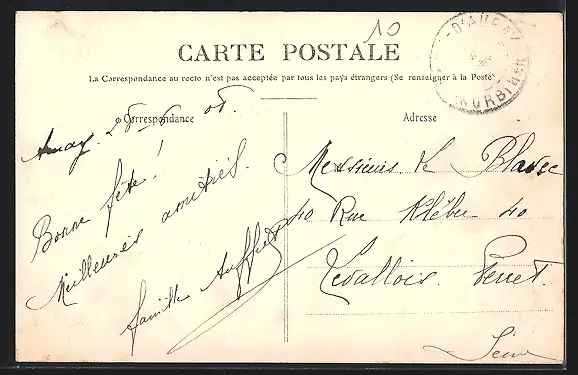 10
D'AURAY
MORBIHAN
CARTE POSTALE
La Correspondance au recto n'est pas acceptée par tous les pays étrangers (Se renseigner à la Poste)
Correspondance
Adresse
Auray. 25-6 05.
Bonne fête!
Meilleures amitiés.
famille
Messieurs Le Blavec
40 Rue Kléber 40
Levallois. Perret.
Seine